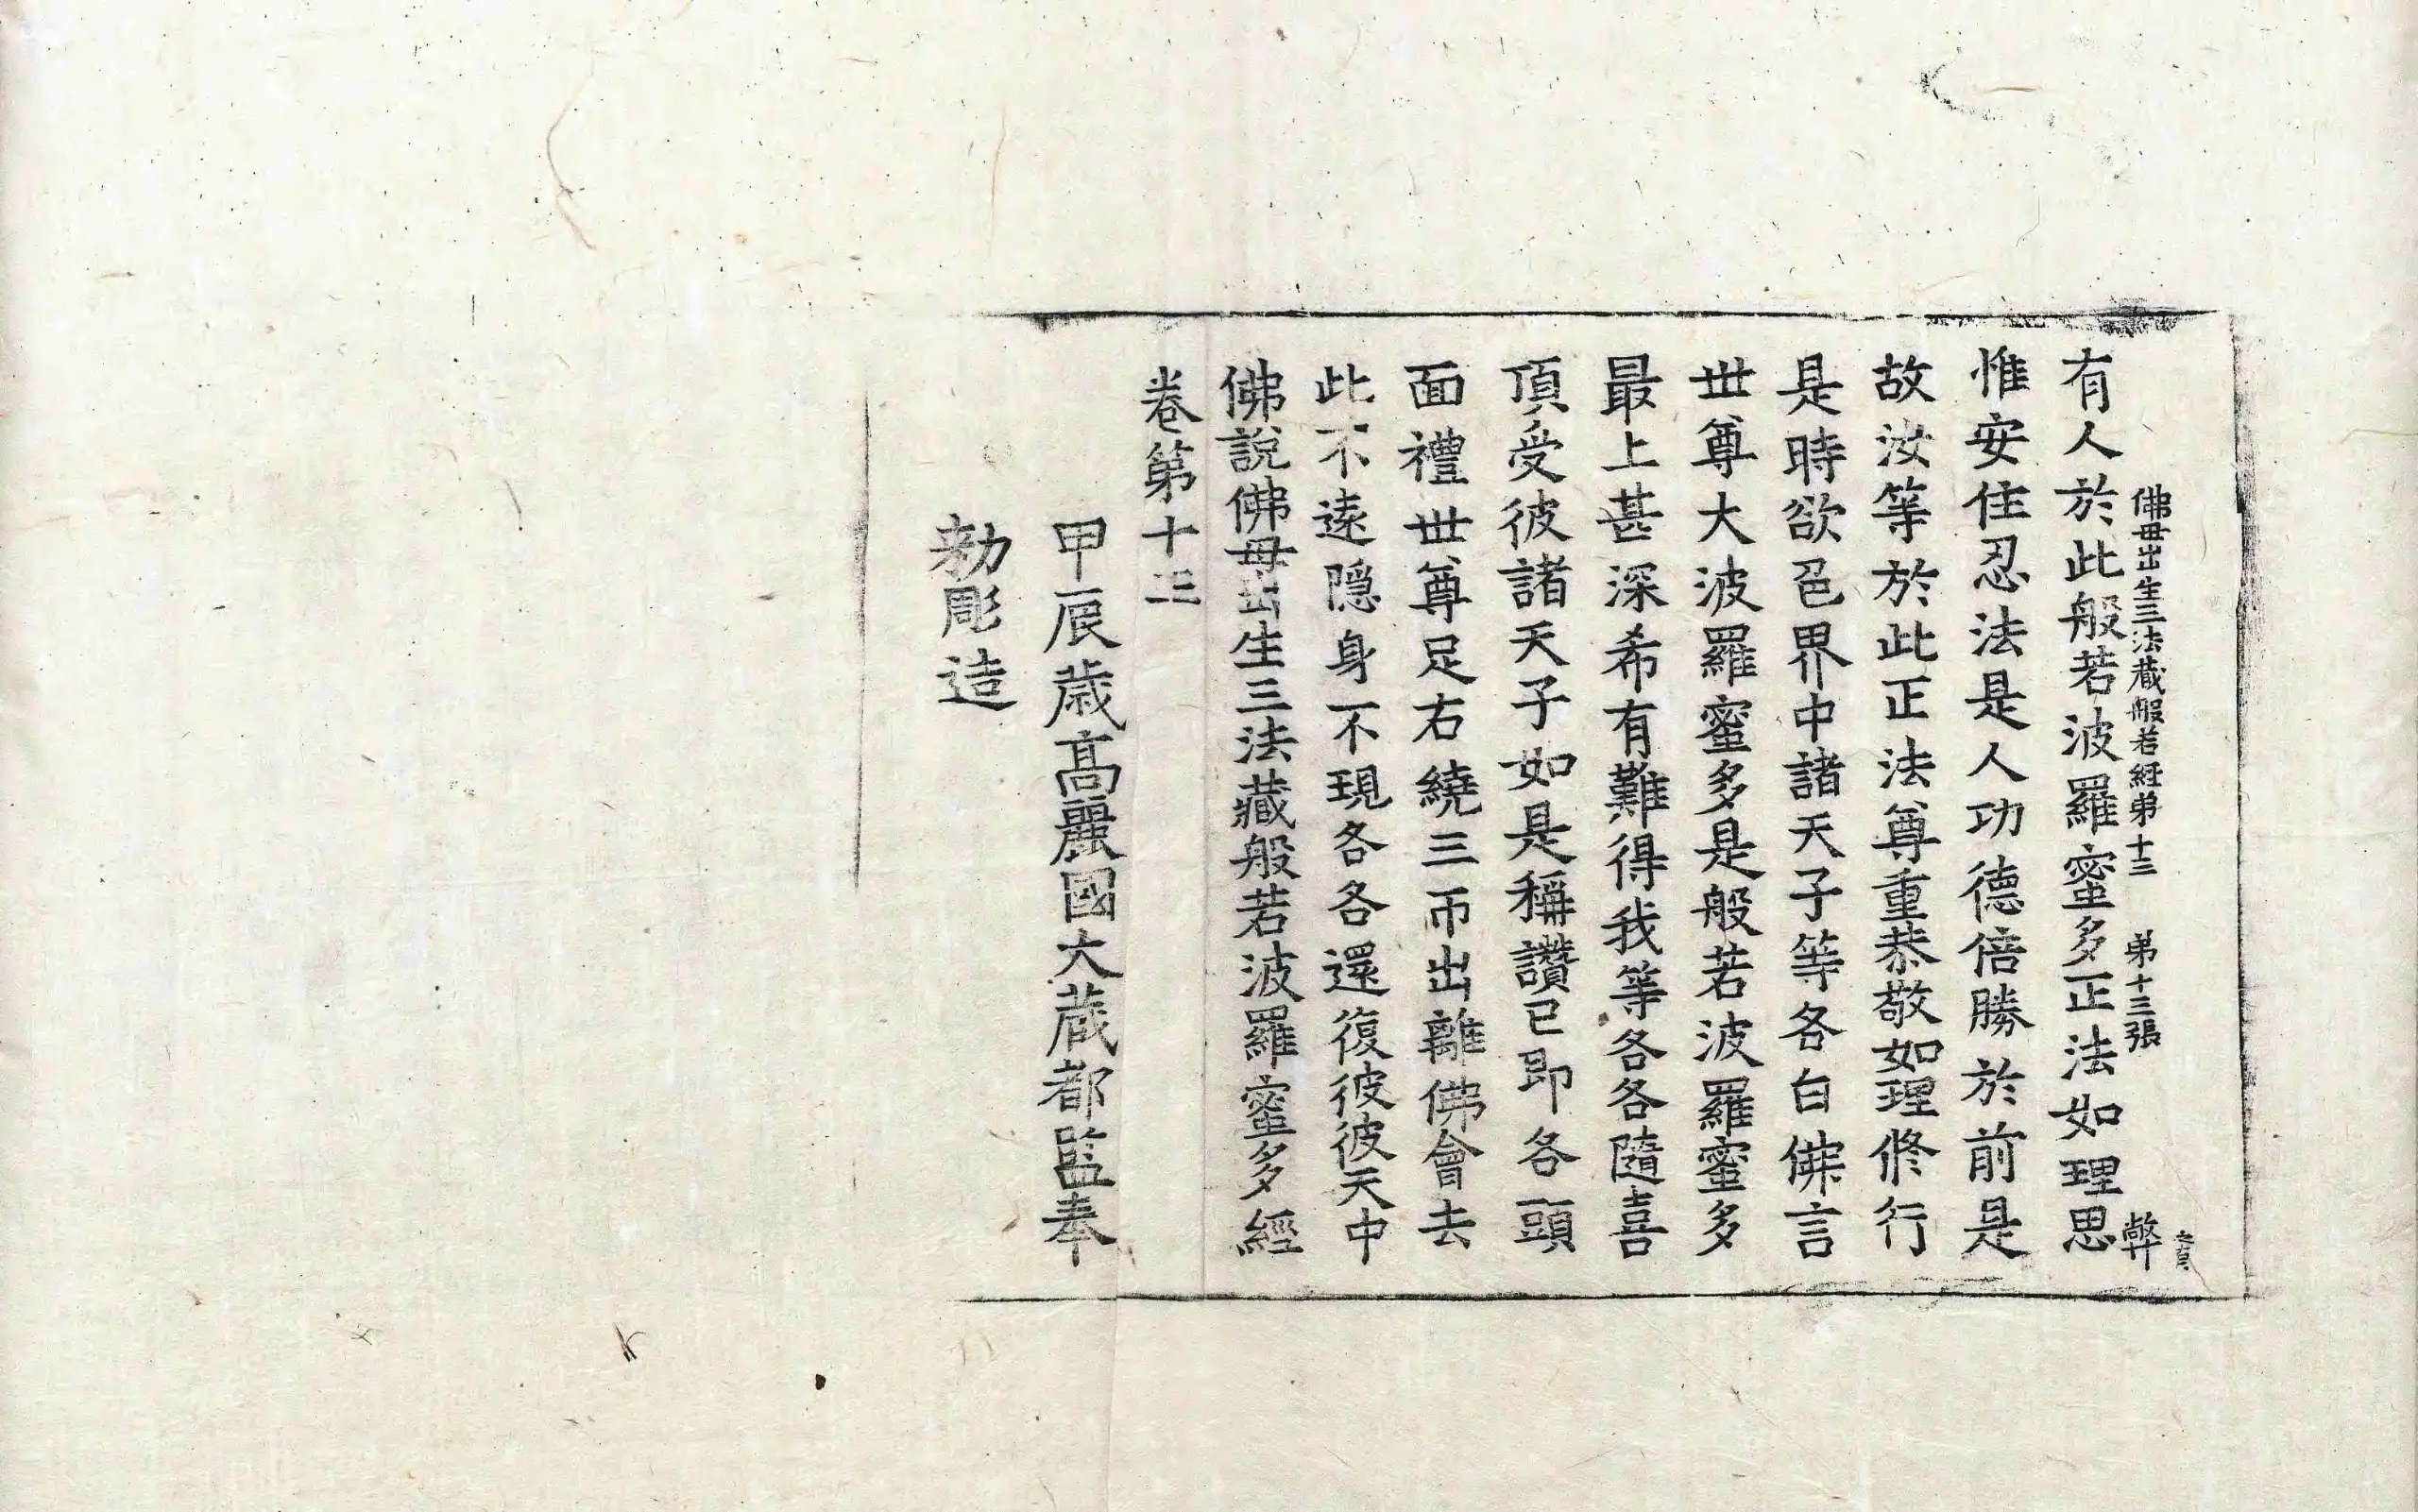 佛母出生三法藏般若経弟十三 弟十三張 弊
有人於此般若波羅蜜多正法如理思
惟安住忍法是人功德倍勝於前是
故汝等於此正法尊重恭敬如理修行
是時欲色界中諸天子等各白佛言
世尊大波羅蜜多是般若波羅蜜多
最上甚深希有難得我等各各隨喜
頂受彼諸天子如是稱讚已即各頭
面禮世尊足右繞三帀出離佛會去
此不遠隱身不現各各還復彼彼天中
佛說佛母出生三法藏般若波羅蜜多經
卷第十三
甲辰歲高麗國大藏都監奉
勅彫造